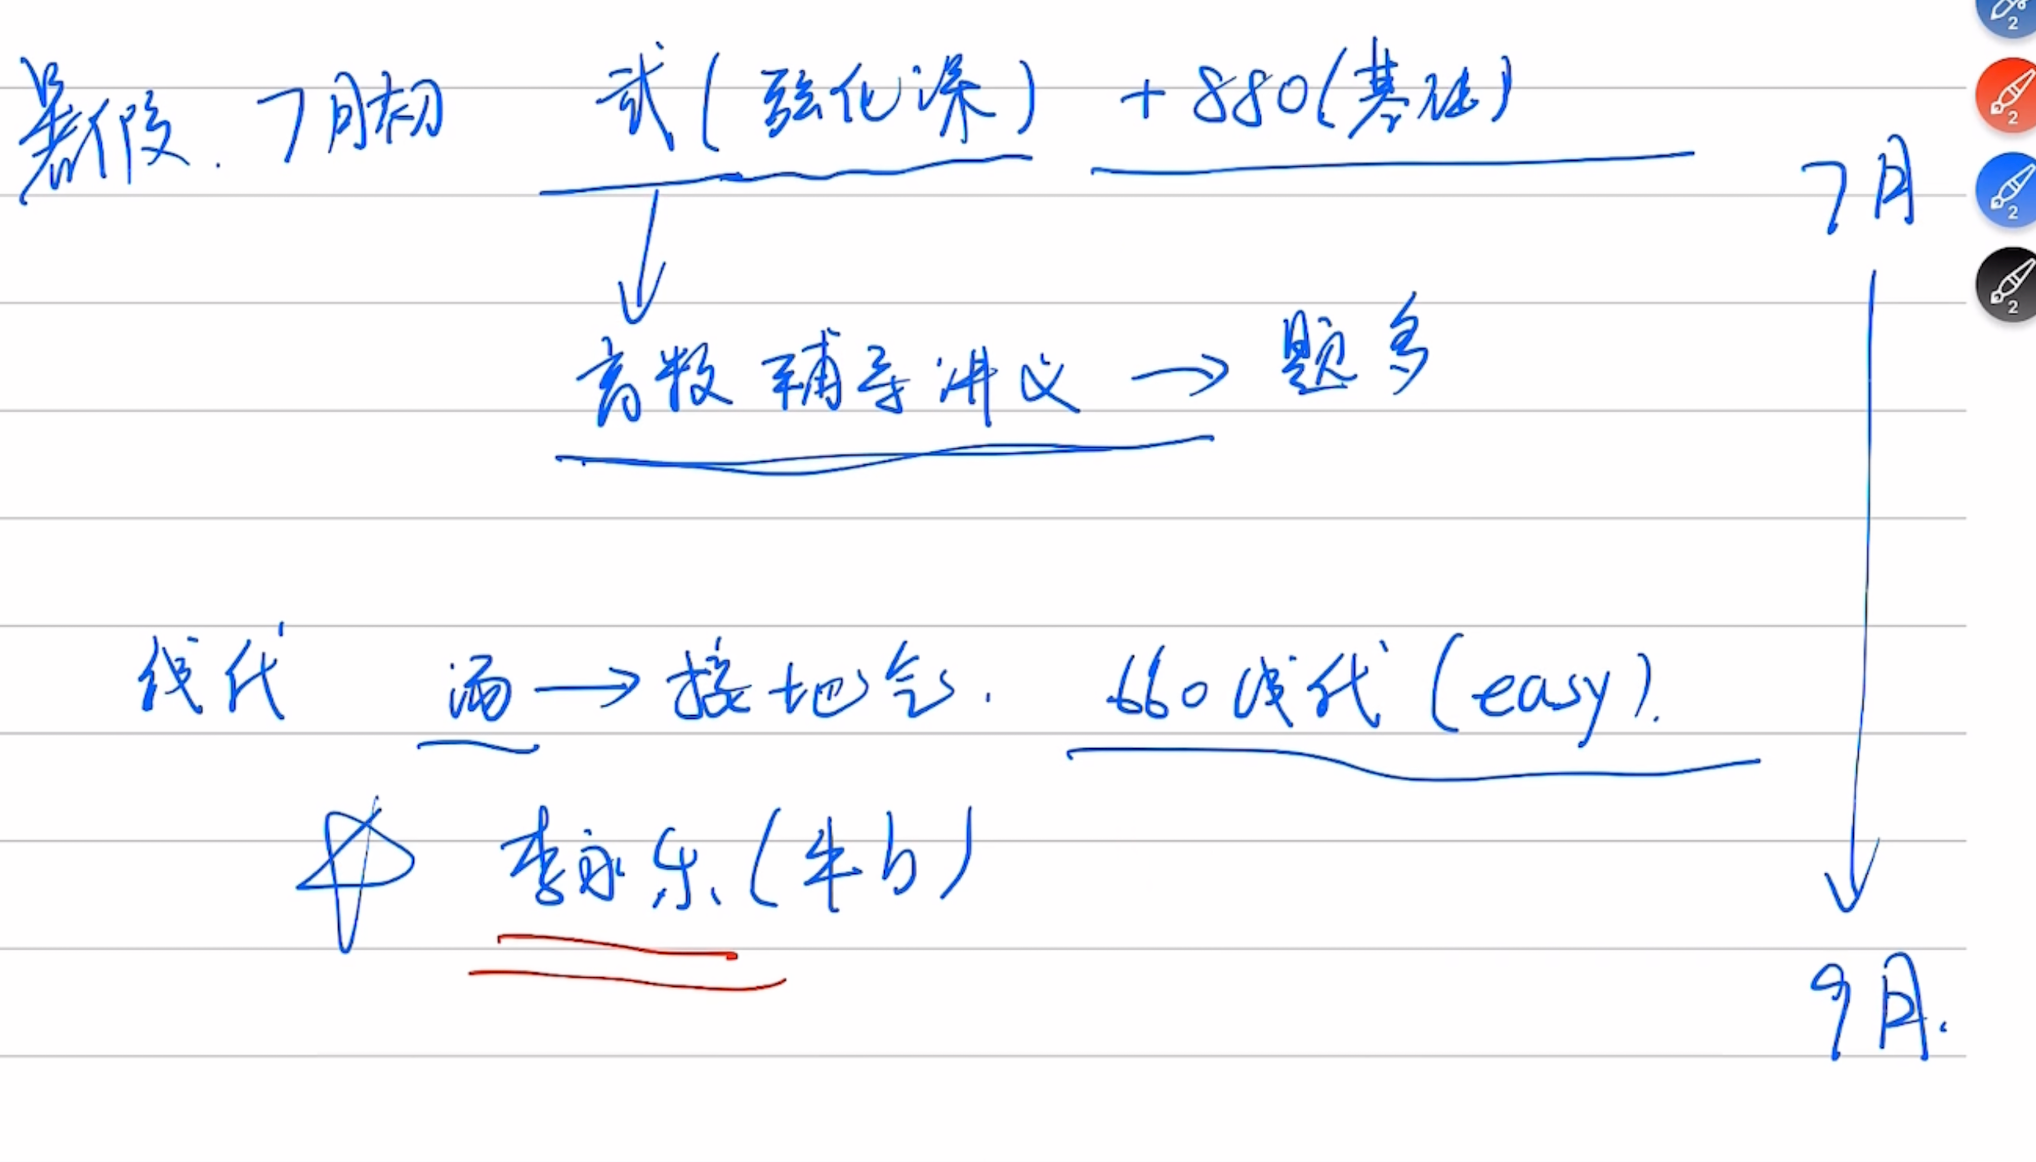 暑假. 7月初 武(强化课) +880(基础)
7月
高数辅导讲义 → 题多
线代 汤 → 接地气. 660线代(easy).
李永乐(牛b)
9月.
2
2
2
2